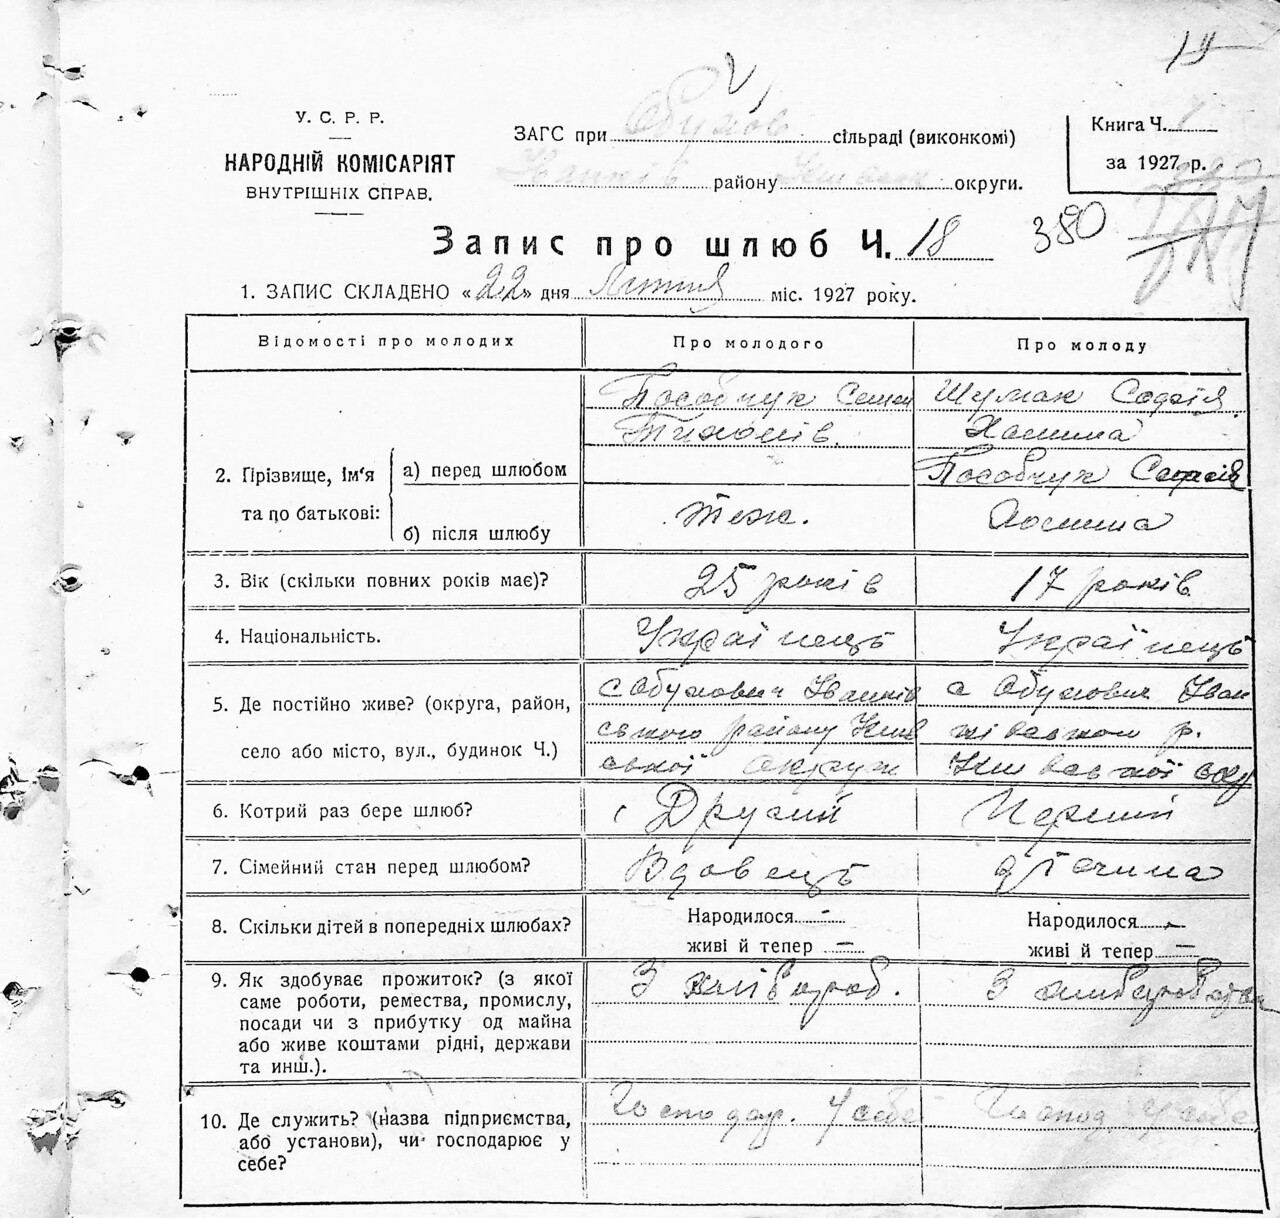 У. С. Р. Р.
НАРОДНІЙ КОМІСАРІЯТ
ВНУТРІШНІХ СПРАВ.
ЗАГС при Обухов сільраді (виконкомі)
Іванків району округи.
Книга Ч. 1
за 1927 р.
Запис про шлюб Ч. 18
380
1. ЗАПИС СКЛАДЕНО «22» дня міс. 1927 року.
Відомості про молодих
Про молодого
Про молоду
2. Прізвище, ім'я та по батькові:
а) перед шлюбом
Пособчук Семен
Тихонів.
Шумак Софія
б) після шлюбу
теж.
Пособчук Софія
3. Вік (скільки повних років має)?
25 років
17 років
4. Національність.
Українець
Українець
5. Де постійно живе? (округа, район,
село або місто, вул., будинок Ч.)
с Обуховичі Іванків
ського району Киів
ської округи
с Обуховичі Іван
ківського р.
Київської окр
6. Котрий раз бере шлюб?
Другий
Перший
7. Сімейний стан перед шлюбом?
Вдовець
дівчина
8. Скільки дітей в попередніх шлюбах?
Народилося –
живі й тепер –
Народилося –
живі й тепер –
9. Як здобуває прожиток? (з якої
саме роботи, ремества, промислу,
посади чи з прибутку од майна
або живе коштами рідні, держави
та инш.).
З хлібороб.
З
10. Де служить? (назва підприємства,
або установи), чи господарює у
себе?
Господар. У себе
Господ У себе